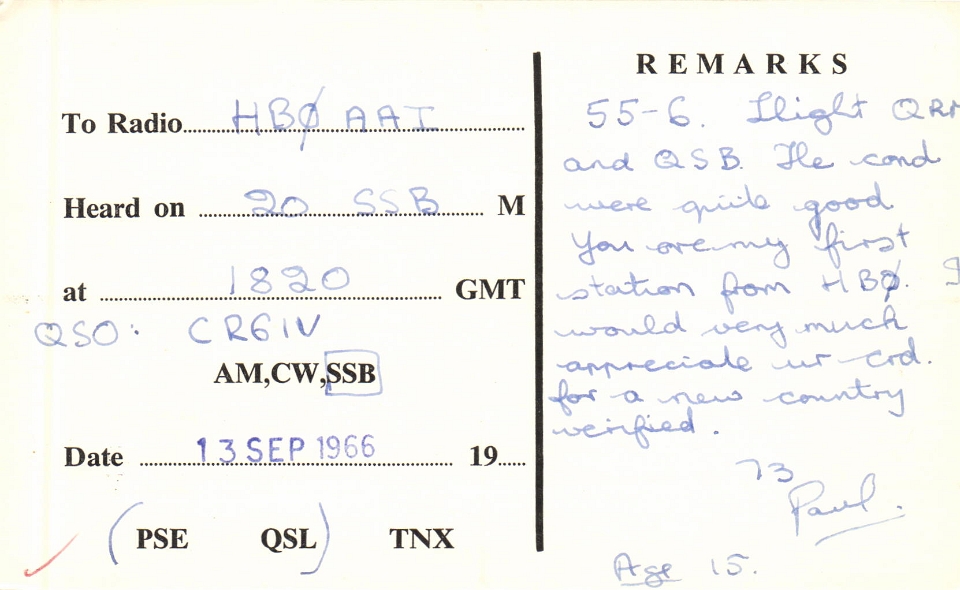 To Radio HBØ AAI
Heard on 20 SSB M
at 1820 GMT
QSO: CR6IV
AM,CW,SSB
Date 13 SEP 1966 19
(PSE QSL) TNX
REMARKS
55-6. Slight QRM
and QSB. The cond
were quite good
You are my first
station from HBØ. I
would very much
appreciate ur crd.
for a new country
verified.
73
Paul.
Age 15.